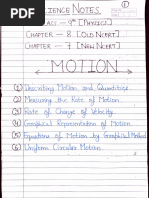 SCIENCE NOTES
CLASS - 9th [PHYSICS]
CHAPTER - 8 [OLD NCERT]
CHAPTER - 7 [NEW NCERT]
MOTION
① Describing Motion and Quantities
② Measuring the Rate of Motion.
③ Rate of Change of Velocity.
④ Graphical Representation of Motion
⑤ Equations of Motion by Graphical Method
⑥ Uniform Circular Motion.